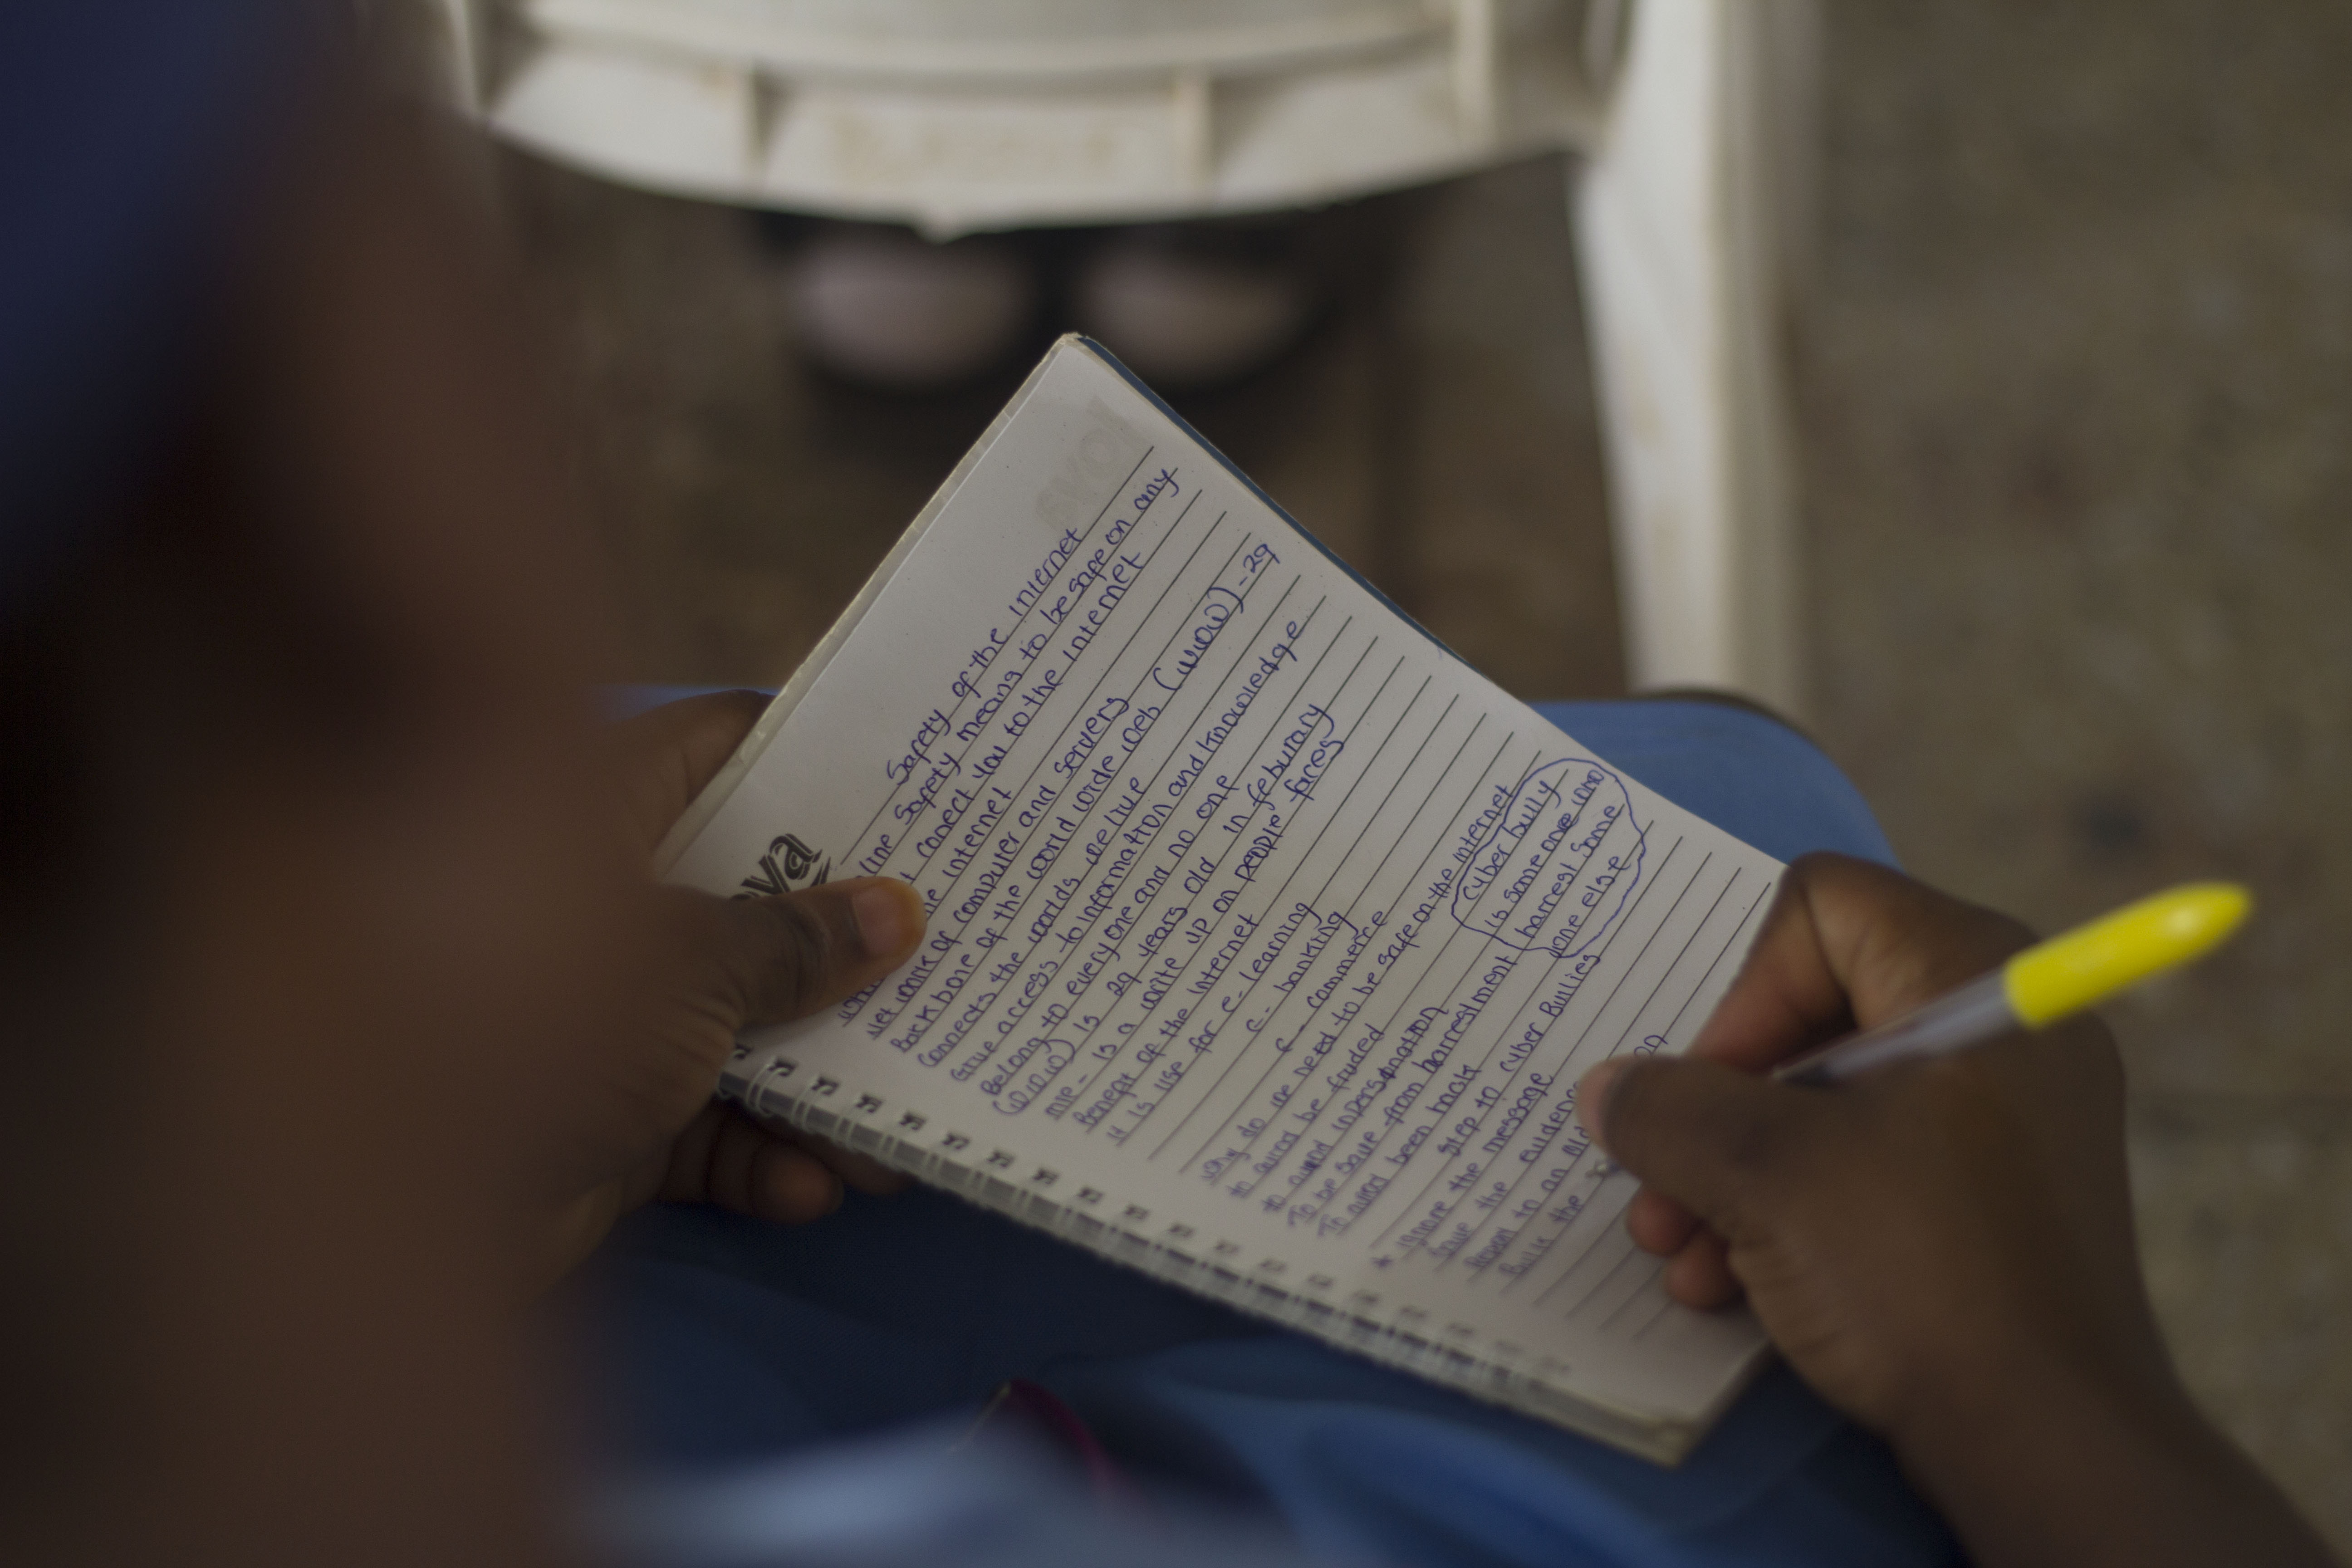 Safety of the internet
line Safety means to be safe on any
conect you to the internet
the internet
Net work of computer and servers
Back bone of the world wide web (wow) - 29
Connects the worlds we live
Give access to information and knowledge
Belong to every one and no one
(www) is 29 years old in feburary
mie - is a write up on people faces
Benefit of the internet
It is use for e-learning
e- banking
e- commerce
Why do we need to be safe on the internet
to avoid be fruded
to avoid inpersonation
To be save from harrestment
To avoid been hack
step to cyber Bullies
ignore the message
Save the eviden
to an
the
Cyber bully
is some one who
harrest some
one else